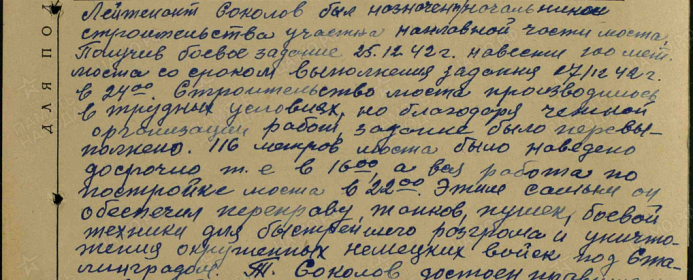 Лейтенант Соколов был назначен начальником
строительства участка наплавной части моста.
Получив боевое задание 25.12.42 г. навести 100 мет.
моста со сроком выполнения задания 27/12 42 г.
в 2400. Строительство моста производилось
в трудных условиях, но благодаря четкой
организации работ, задание было перевы-
полнено. 116 метров моста было наведено
досрочно т.е в 1600, а вся работа по
постройке моста в 2200. Этим самым он
обеспечил переправу, танков, пушек, боевой
техники для быстрейшего разгрома и уничто-
жения окруженных немецких войск под Ста-
линградом. Т. Соколов достоен
ДЛЯ ПОД